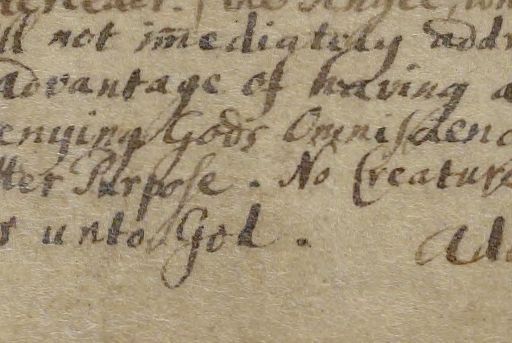 the Angel, wh
ll not im̅ediately addr
advantage of having a
enying Gods Omniscienc
tter Purpose. No Creature
s unto God. Ad